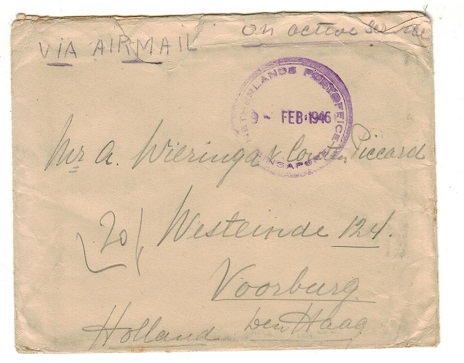 VIA AIRMAIL on active service
NETHERLANDS POSTOFFICE
9 - FEB 1946
SINGAPORE
Mr A. Wieringa
Piccard
20
Westeinde 124.
Voorburg.
Holland. Den Haag